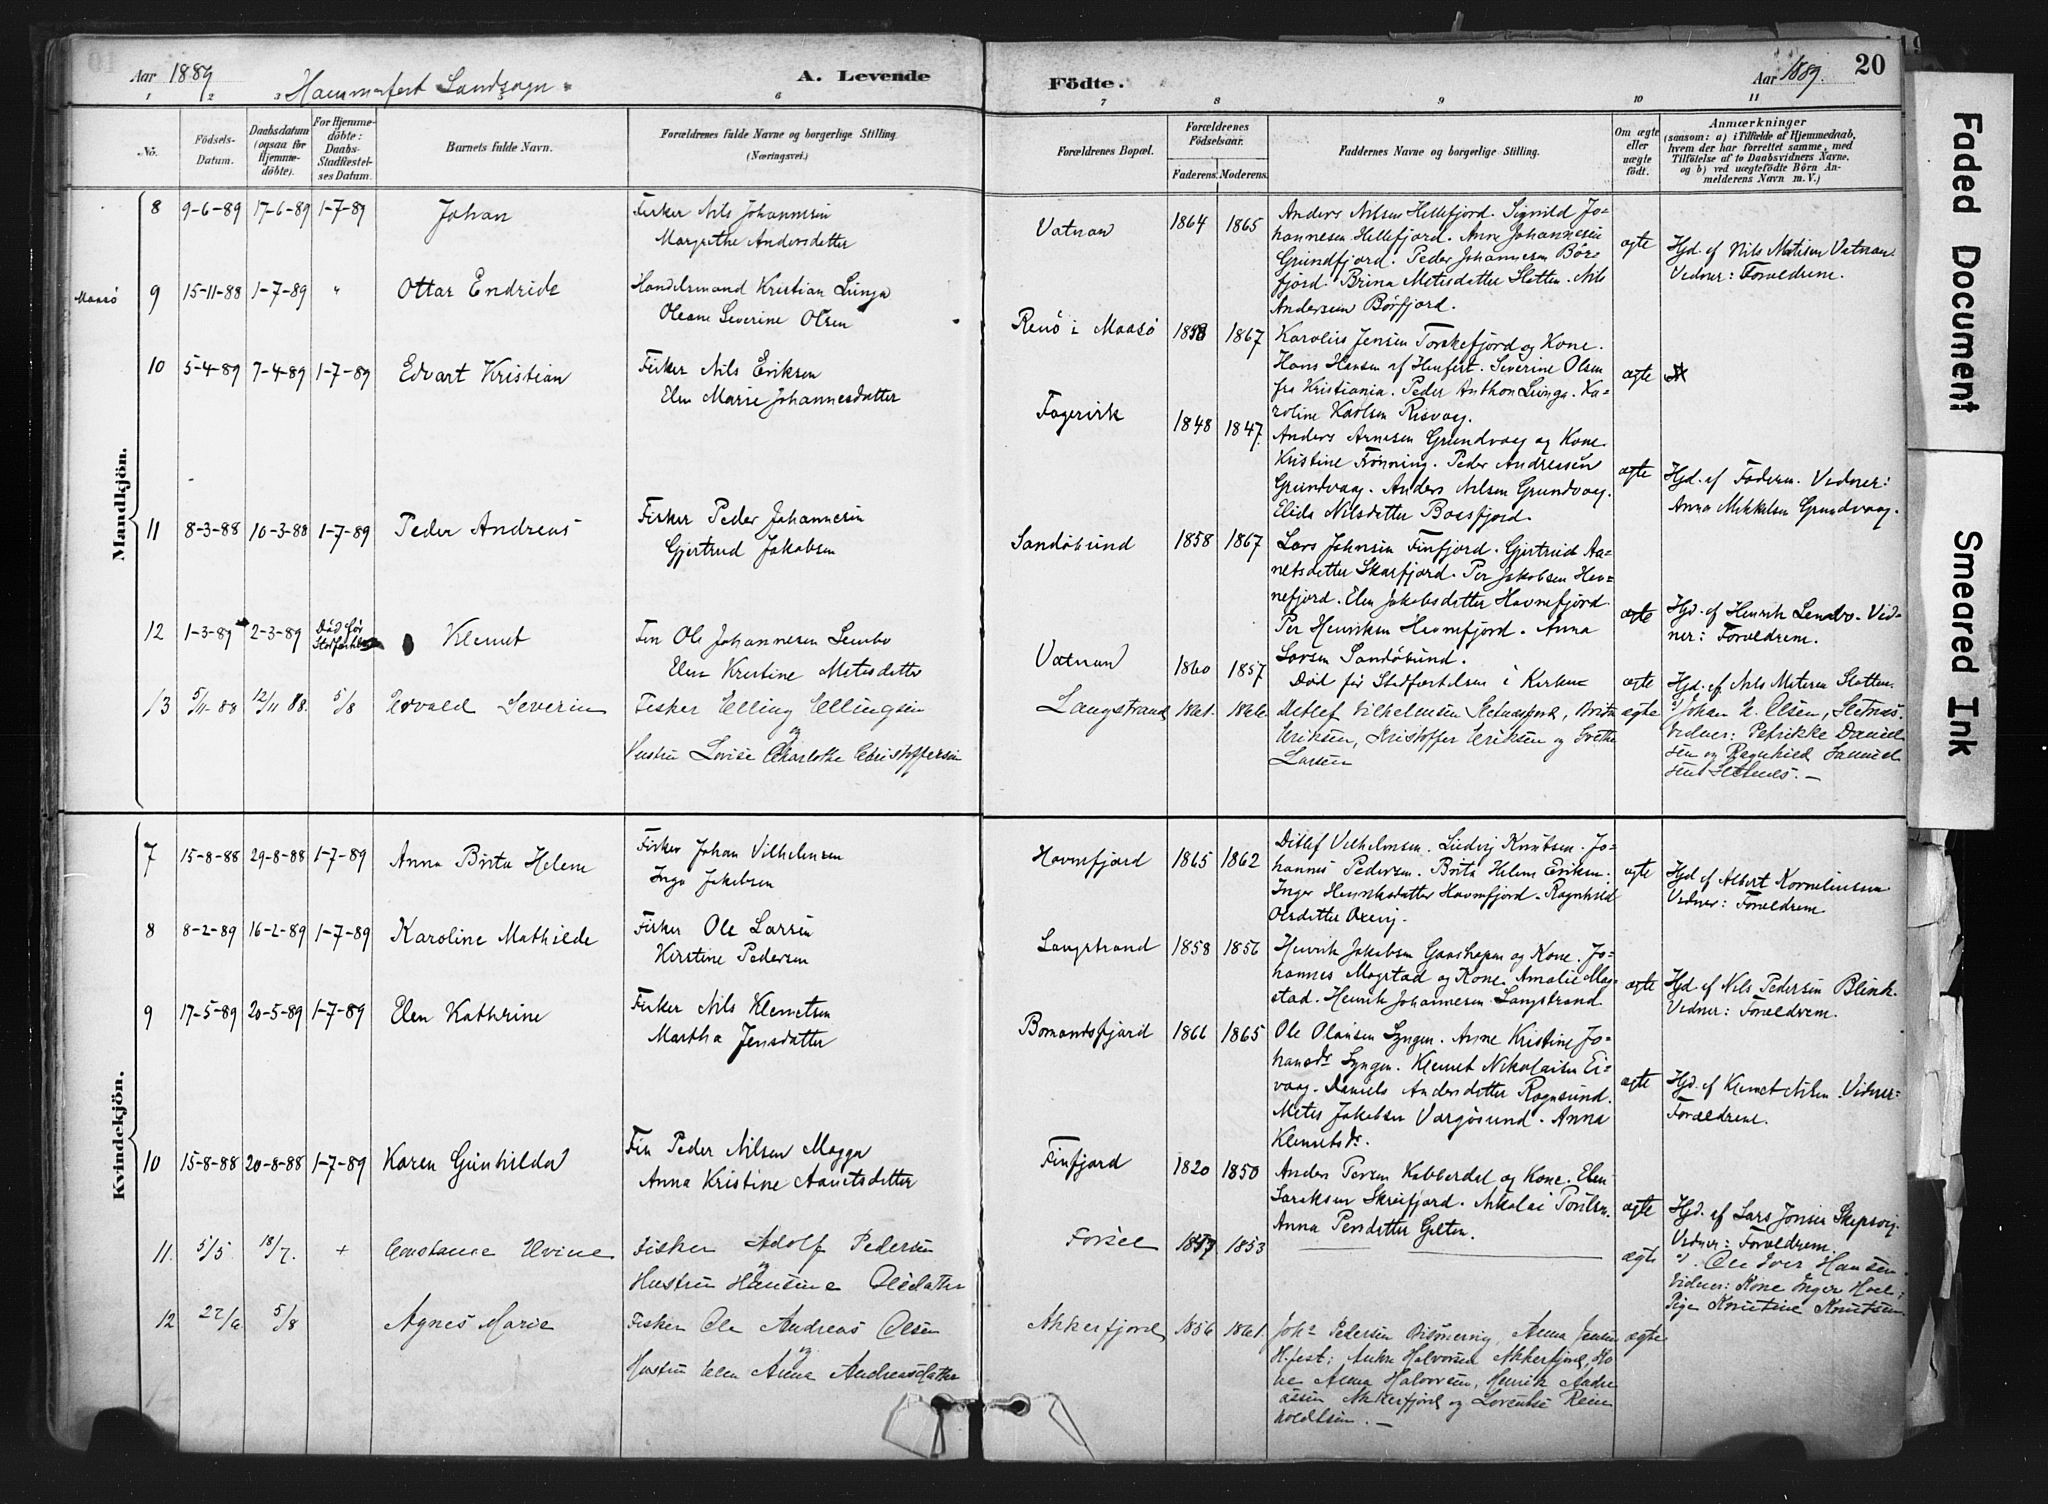 Aar 1889
Hammerfest Landsogn
A. Levende
Födte.
Aar 1889.
20
1 2 3 6 7 8 9 10 11
No.
Födsels-Datum.
Daabsdatum (ogsaa for Hjemmedöbte).
For Hjemmedöbte: Daabs-Stadfestelses Datum.
Barnets fulde Navn.
Forældrenes fulde Navne og borgerlige Stilling
(Næringsvei.)
Forældrenes Bopæl.
Forældrenes Födselsaar.
Faderens. Moderens.
Faddernes Navne og borgerlige Stilling.
Om ægte eller uægte födt.
Anmærkninger
(saasom: a) i Tilfælde af Hjemmedaab,
hvem der har forrettet samme, med
Tilföielse af to Daabsvidners Navne,
og b) ved uægtefödte Börn Anmelderens Navn m. V.)
Mandkjön.
8 9-6-89 17-6-89 1-7-89 Johan
Fisker Nils Johannesen
Margrethe Andersdatter
Vatnan 1864 1865
Anders Nilsen Hellefjord. Sigvild Jo-
hannesen Hellefjord. Anne Johannesen
Grundfjord. Peder Johannesen Bør-
fjord. Brina Metisdatter Slotten. Nils
Andersen Børfjord.
ægte
Hjd. af Nils Matisen Vatnan
Vidner: Forældrene.
Maasö
9 15-11-88 1-7-89 " Ottar Endride
Handelsmand Kristian Lunga
Oleane Severine Olsen
Renö i Maasö 1858 1867
Karolius Jensen Torskefjord og Kone.
Hans Hansen af Honfert. Severine Olsen
fra Kristiania. Peder Anthon Lunga. Ka-
roline Karlsen Risvaag.
ægte
10 5-4-89 7-4-89 1-7-89 Edvart Kristian
Fisker Nils Eriksen
Elen Marie Johannesdatter
Fagervik 1848 1847.
Anders Arnesen Grundvaag og Kone
Kristine Rönning. Peder Andreasen
Grundvaag. Anders Nilsen Grundvaag.
Elida Nilsdatter Baasfjord.
ægte
Hjd. af Faderen. Vidner:
Anna Mikkelsen Grundvaag.
11 8-3-88 10-3-88 1-7-89 Peder Andreas
Fisker Peder Johannesen
Gjertrud Jakobsen
Sandöbund 1858 1867
Lars Johnsen Finfjord. Gjertrud Aa-
netsdetter Skarfjord. Per Jakobsen Hav-
nefjord. Elen Jakobsdetter Havnefjord
Per Henriksen Havnefjord. Anna
Larsen Sandöbund.
ægte
Hjd. af Henrik Lembo. Vid-
ner: Forældrene.
12 1-3-89 2-3-89 Död för Stadfæstelse Klemet
Fin Ole Johannesen Lembo
Elen Kristine Metisdetter
Vatnan 1860 1857
Död för Stadfæstelsen i Kirken
ægte
Hjd. af Nils Metisen Slotten.
13 5/11-88 12/11 88. 5/8 Edvald Severin
Fisker Elling Ellingsen
og
Hustru Lovise Charlotte Christoffersen
Langstrand 1861. 1866.
Detlef Vilhelmsen Sletnæsfjord, Brita
Eriksen, Kristoffer Eriksen og Grethe
Larsen
ægte
Johan E. Olsen, Sletnæs.
Vidner: Petrikke Daniel
sen og Ragnhild Samuel
sen Sletnes. —
Kvindekjön.
7 15-8-88 29-8-88 1-7-89 Anna Brita Helene
Fisker Johan Vilhelmsen
Inga Jakobsen
Havnefjord 1865 1862
Ditlef Vilhelmsen. Ludvig Knutsen. Jo-
hannes Pedersen. Brita Helene Eriksen.
Inger Henriksdatter Havnefjord. Ragnhild
Olsdetter Oxevig.
ægte
Hjd. af Albert Korneliussen
Vidner: Forældrene
8 8-2-89 16-2-89 1-7-89 Karoline Mathilde
Fisker Ole Larsen
Kirstine Pedersen
Langstrand 1858 1856
Henrik Jakobsen Gaashopen og Kone. Jo-
hannes Magstad og Kone. Amalie Mag-
stad. Henrik Johannesen Langstrand
ægte
Hjd. af Nils Pedersen Blink.
Vidner: Forældrene.
9 17-5-89 20-5-89 1-7-89 Elen Kathrine
Fisker Nils Klemetsen
Martha Jensdatter
Bomandsfjord 1866 1865
Ole Olausen Lyngen. Anne Kristine Jo-
hansdr Lyngen. Klemet Nikolaisen Ei-
vaag. Daniels Andersdetter Rognsund.
Metes Jakobsen Vargösund. Anna
Klemetsdr.
ægte
Hjd. af Klemet Nilsen. Vidner:
Forældrene.
10 15-8-88 20-8-88 1-7-89 Karen Gunhilda
Fin Peder Nilsen Magga
Anna Kristine Aanetsdetter
Finfjord 1820 1850
Anders Persen Kobberdal og Kone. Elen
Larsen Skreifjord. Nikolai Poulsen.
Anna Persdetter Galten.
ægte
Hjd. af Lars Jonsen Skipsvig.
Vidner: Forældrene.
11. 5/5 18/7. + Constance Evine
Fisker Adolf Pedersen
og
Hustru Hansine Olsdatter
Forsöl 1857 1853
ægte
Ole Iver Hansen.
Vidner: Kone Inger Hoel
Pige Knutine Knutsen
12 22/6 5/8 Agnes Marie
Fisker Ole Andreas Olsen
og
Hustru Elen Anna Andreasdatter
Akkerfjord 1856 1861.
Johs Pedersen Bismervig, Anna Jensen
H.fest; Anders Halvorsen Akkerfjord, Ko
ne Anna Halvorsen, Henrik Andre
assen Akkerfjord og Lorentse Rein
holdtsen. —
ægte
Faded Document
Smeared Ink